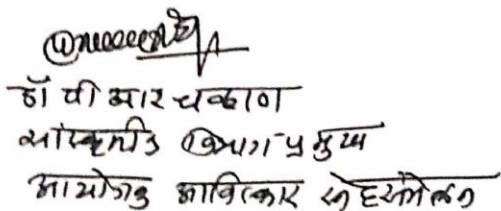 डॉ पी आर चव्हाण
सांस्कृतीक विभाग प्रमुख
आयोजक आविष्कार स्नेहसंमेलन